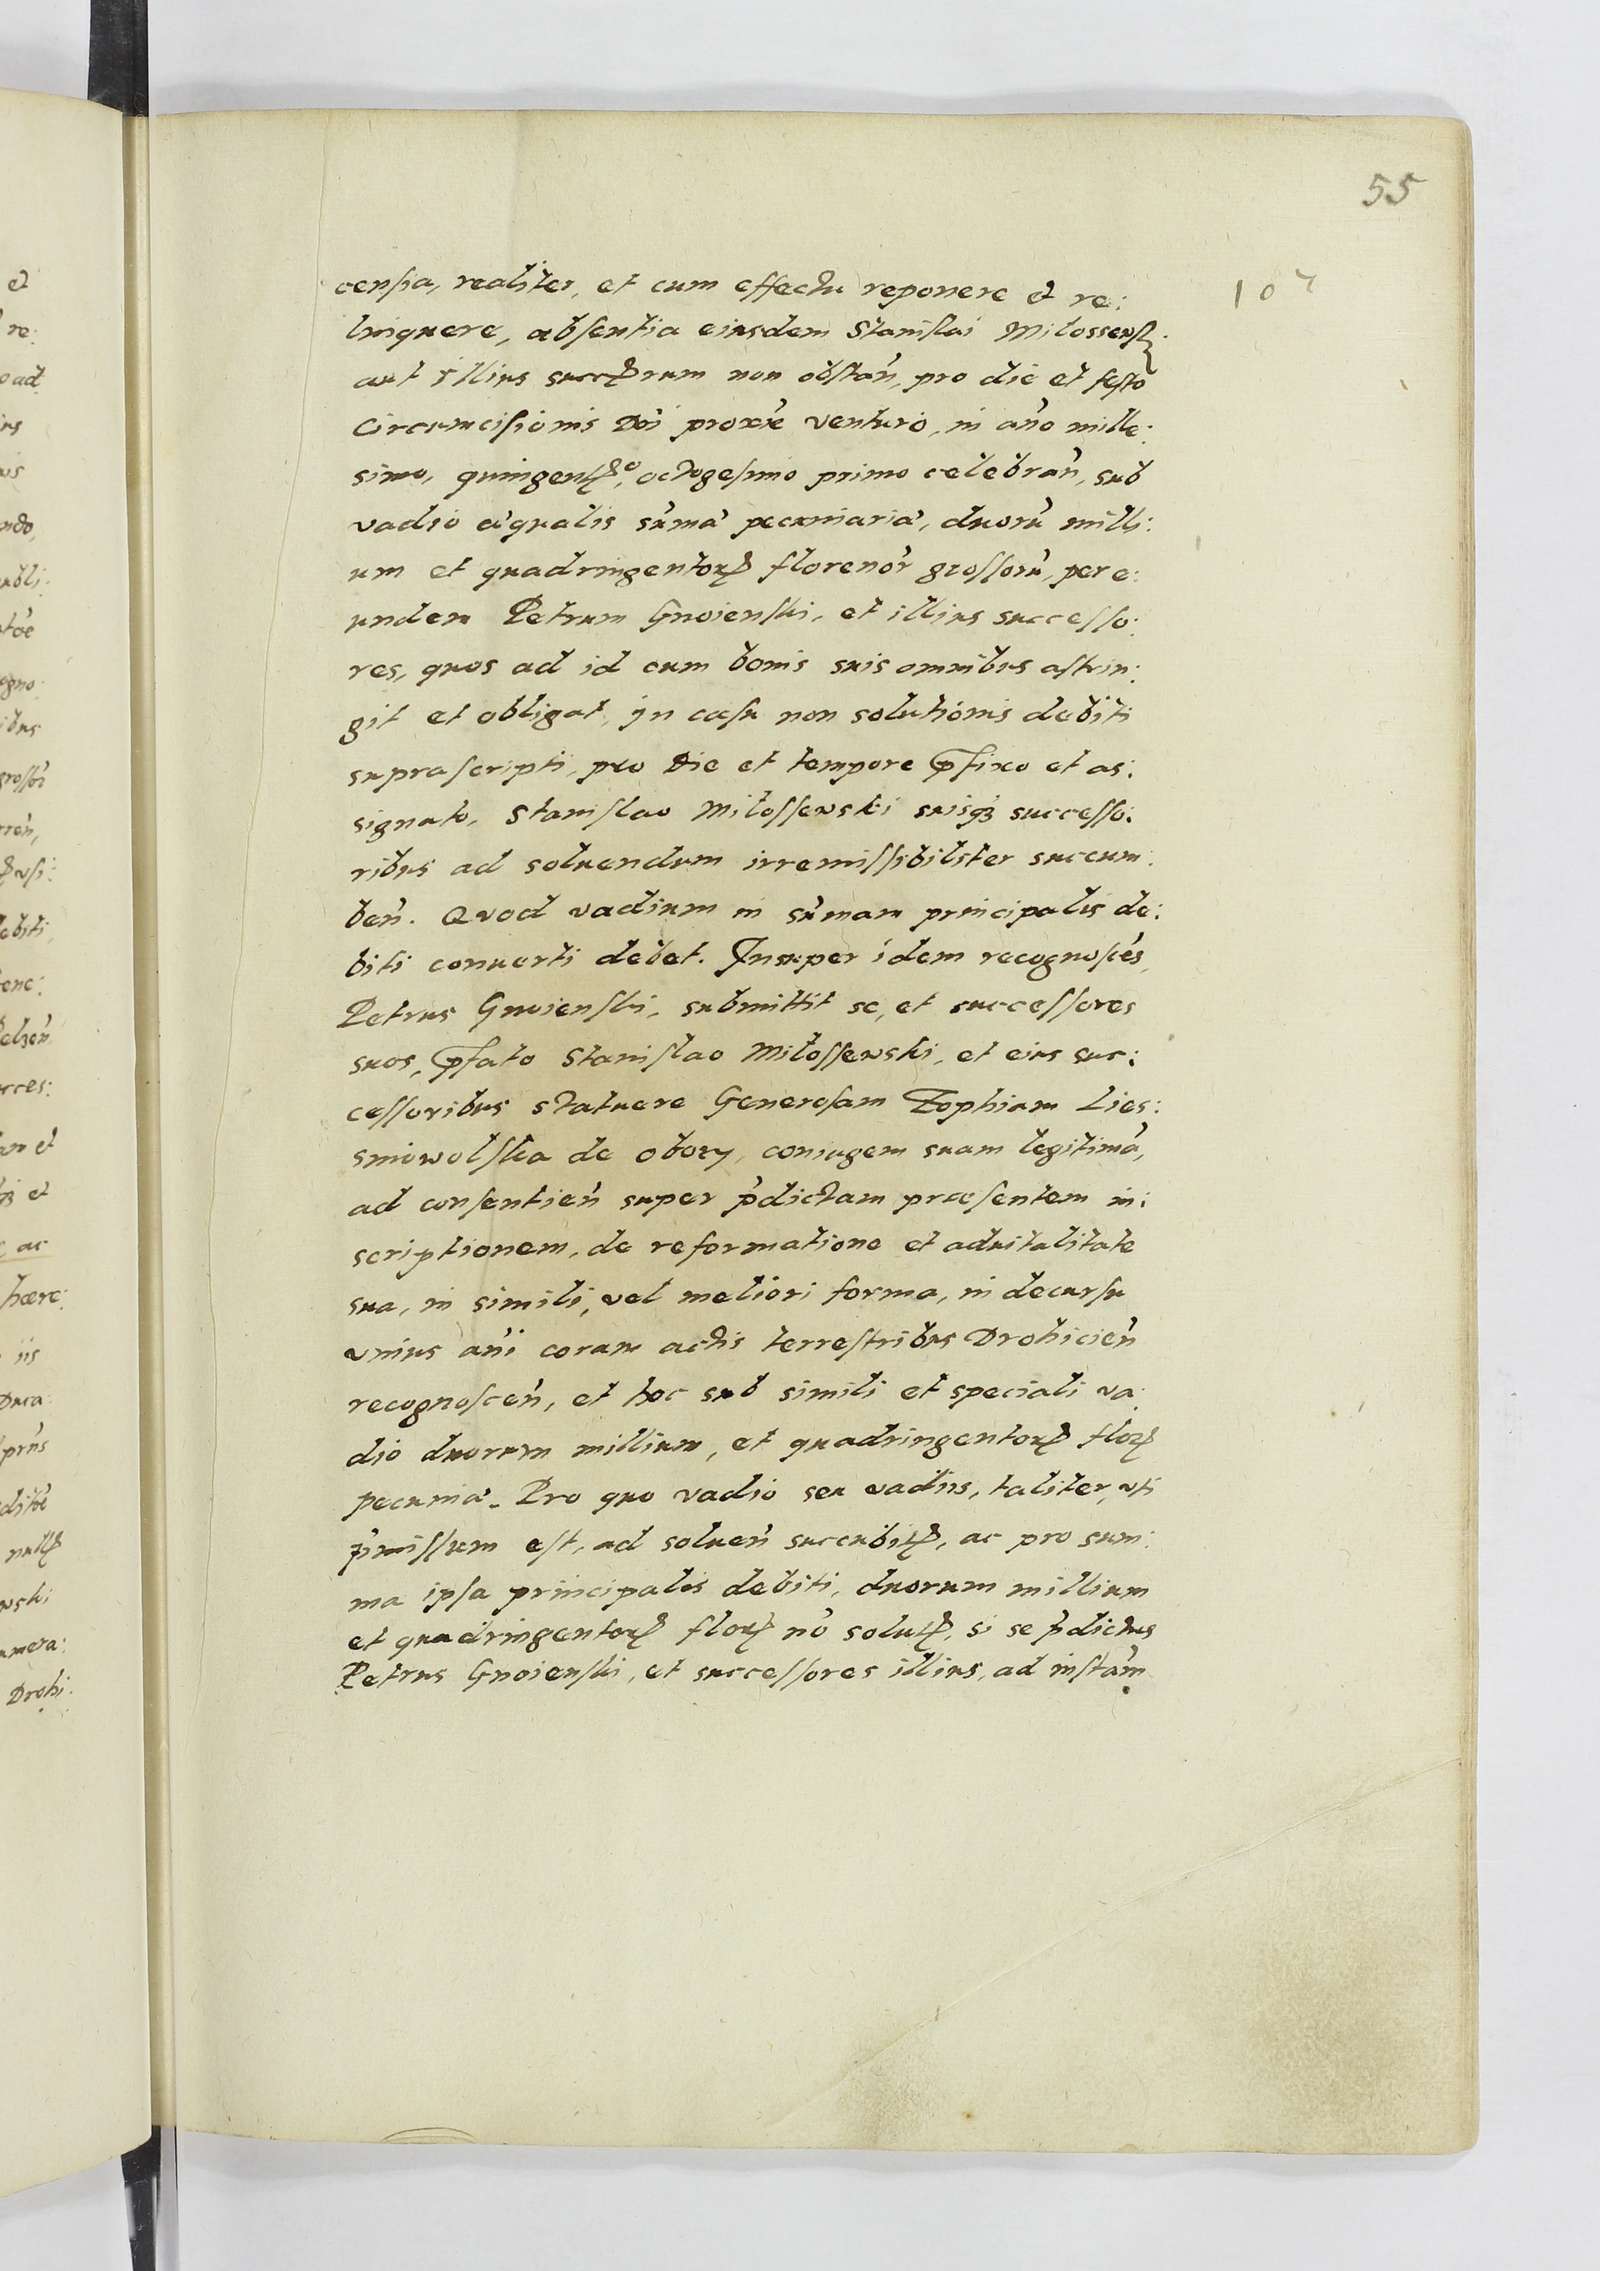 55
107
censia, realiter, et cum effectu reponere et re:
linquere, absentia eiusdem Stanislai Milossensz
aut illius succrum non obstan, pro die et festo
Circumcisionis Dni proxie venturo, in ano mille:
simo, quingento, octogesimo primo celebran, sub
vadio aequalis suma pecuniaria, duoru milli:
um et quadringentorz florenor grossoru, per e:
undem Petrum Gnoienski, et illius successo:
res, quos ad id cum bonis suis omnibus astrin:
git et obligat, jn casu non solutionis debiti
suprascripti, pro Die et tempore pfixo et as:
signato, Stanislao Milossewski suisqz successo:
ribus ad soluendum irremissibiliter succum:
ben. Quod vadium in sumam principalis de:
biti conuerti debet. Insuper idem recognosces
Petrus Gnoienski, submittit se, et successores
suos, pfato Stanislao Milossewski, et eius suc:
cessoribus statuere Generosam Zophiam Lies:
sniowolska de obory, coniugem suam legitima,
ad consentien super pdictam praesentem in:
scriptionem, de reformatione et aduitalitate
sua, in simili, vel meliori forma, in decursu
vnius ani coram actis terrestribus Drohicien
recognoscen, et hoc sub simili et speciali va:
dio duorum millium, et quadringentorz florz
pecunia. Pro quo vadio seu vadiis, taliter, vti
pmissum est, ad soluen succubitz, ac pro sum:
ma ipsa principalis debiti, duorum millium
et quadringentorz florz no solutz, si se pdictus
Petrus Gnoienski, et successores illius, ad instam